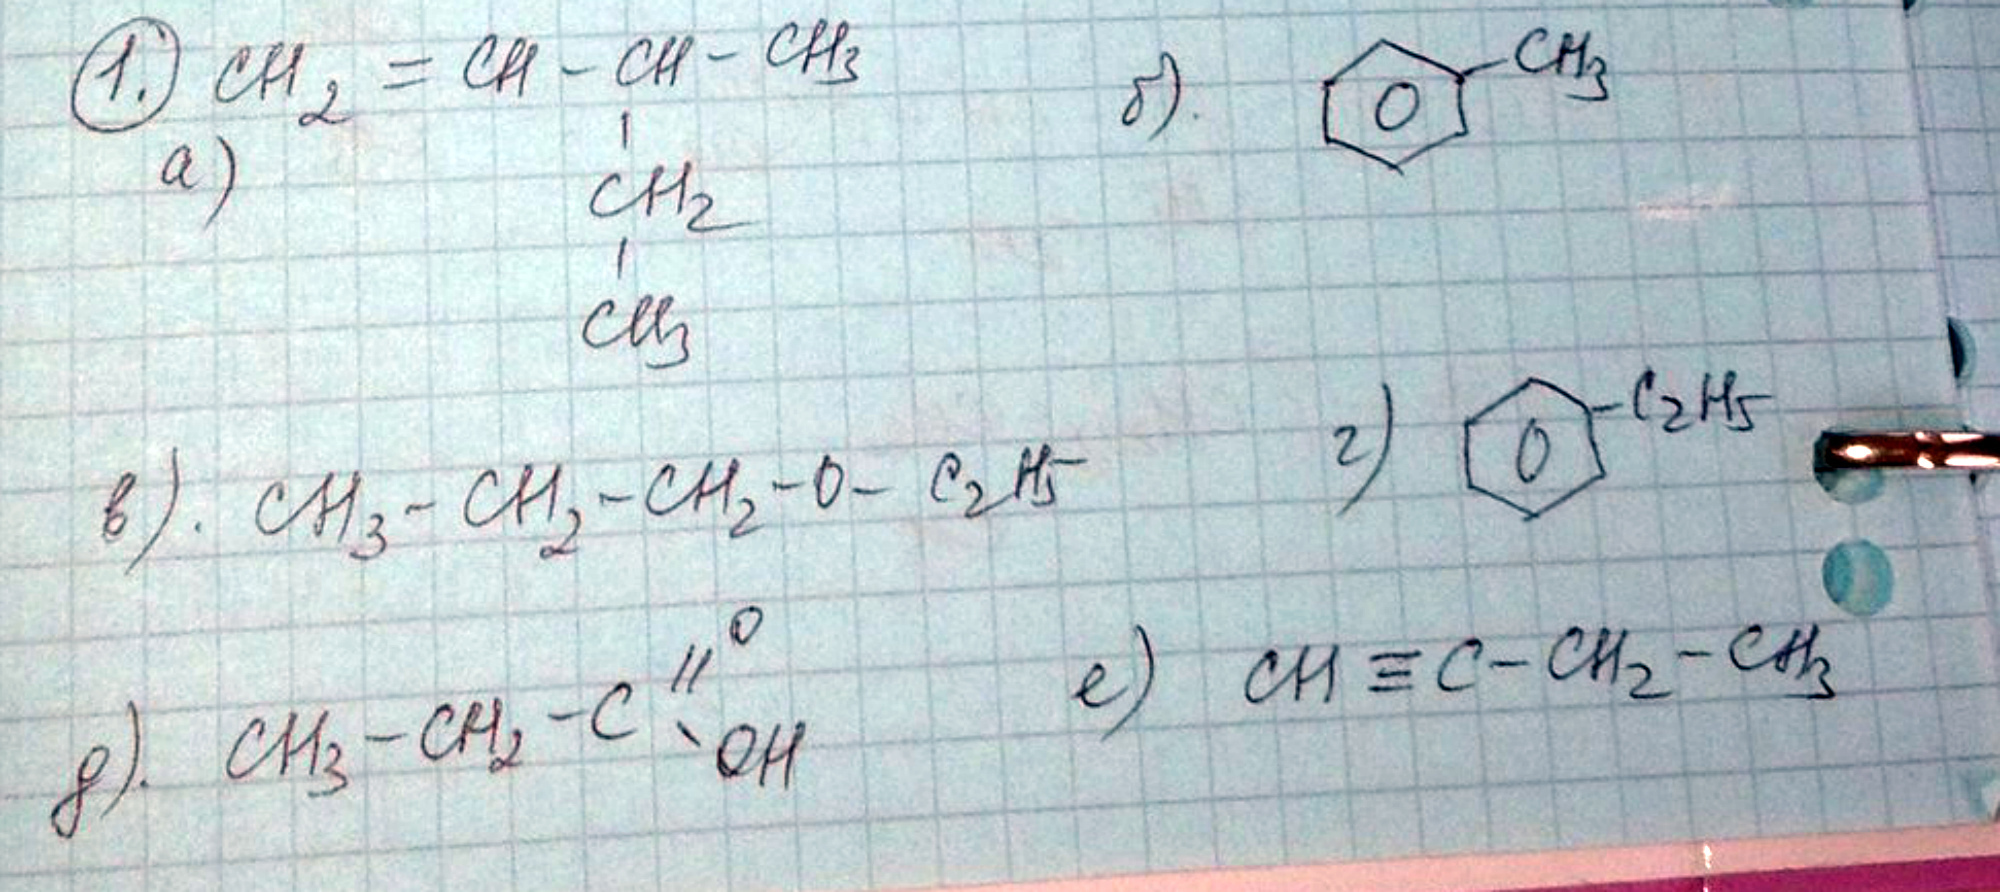 1. CH₂ = CH - CH - CH₃
а)
CH₂
CH₃
б). CH₃
в). CH₃ - CH₂ - CH₂ - O - C₂H₅
г) C₂H₅
д). CH₃ - CH₂ - C
O
OH
е) CH ≡ C - CH₂ - CH₃